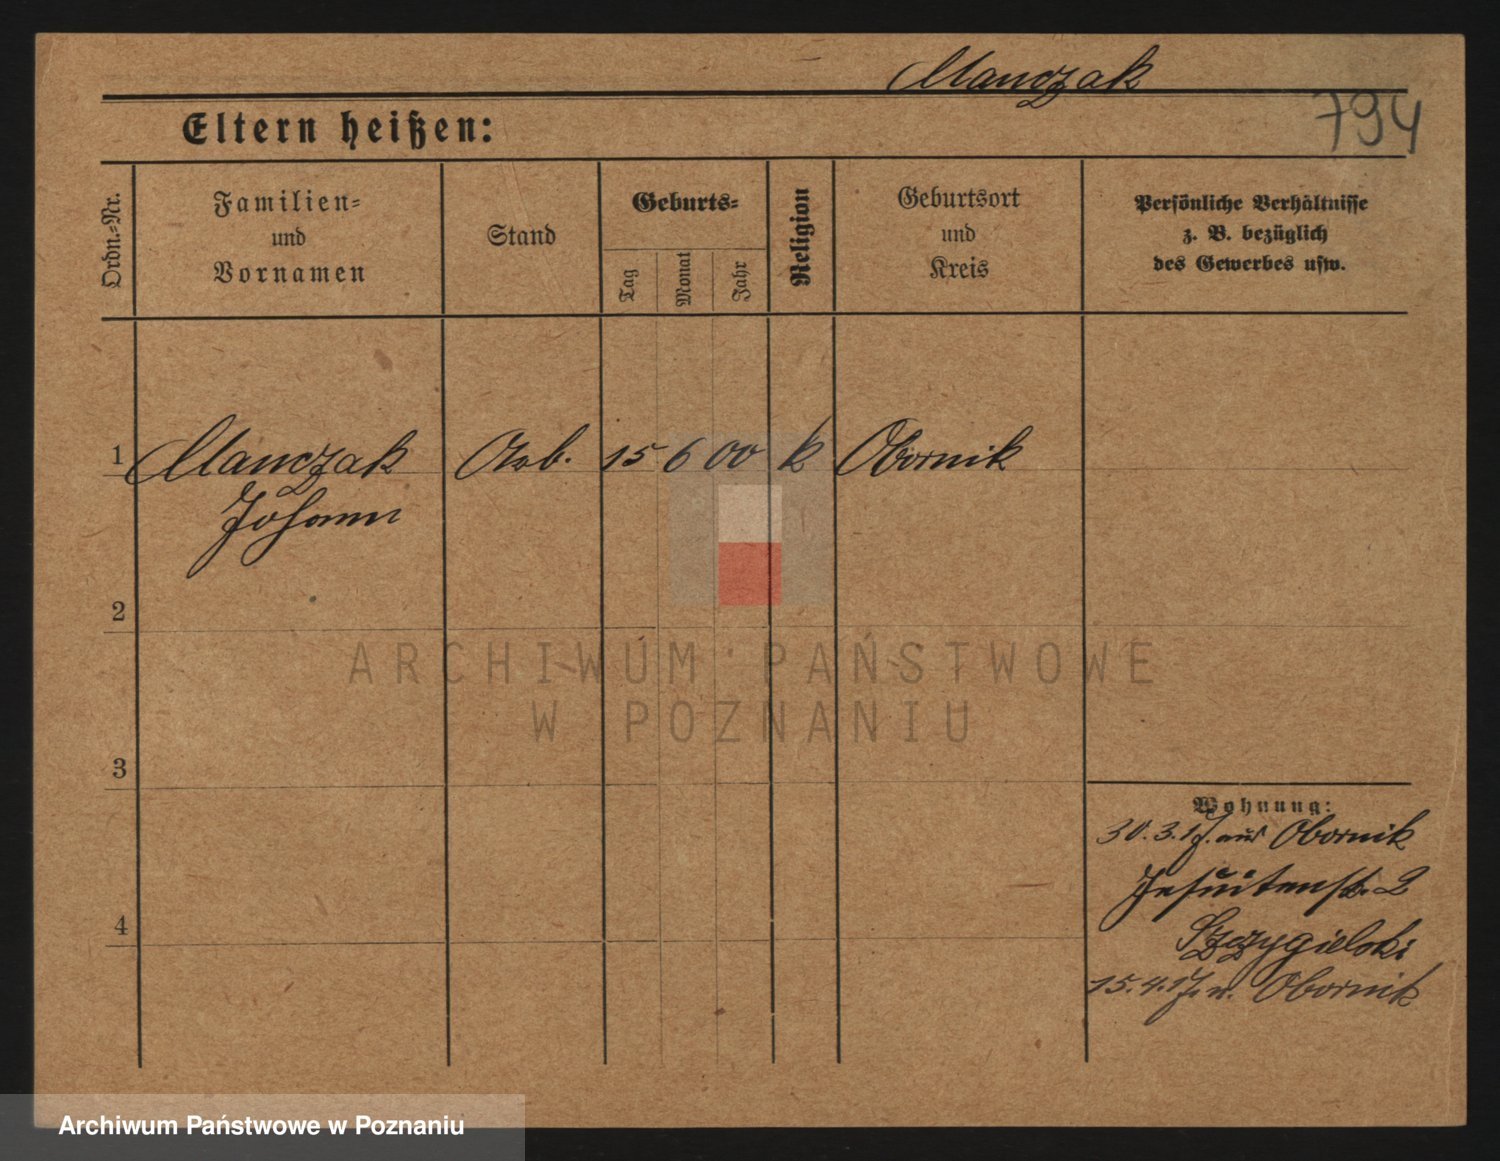 Manczak
794
Eltern heißen:
Ordn.-Nr.
Familien-
und
Vornamen
Stand
Geburts-
Tag
Monat
Jahr
Religion
Geburtsort
und
Kreis
Persönliche Verhältnisse
z. B. bezüglich
des Gewerbes usw.
1 Manczak Arb. 15 6 00 k Obornik
Johann
2
3
4
Wohnung:
30.3.17. aus Obornik
Jesuitenstr. 2
Szczygielski
15.4.17. n. Obornik
ARCHIWUM PAŃSTWOWE
W POZNANIU
Archiwum Państwowe w Poznaniu